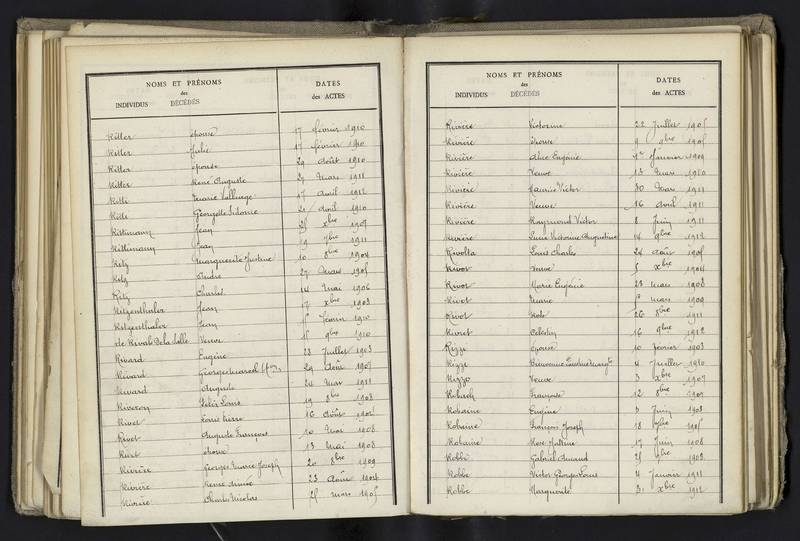 NOMS ET PRÉNOMS
des
INDIVIDUS DÉCÉDÉS
DATES
des ACTES
Ritter épouse 17 février 1910
Ritter Julie 17 février 1910
Ritter épouse 29 Août 1910
Ritter René Auguste 27 Mars 1911
Marie 17 Avril 1912
Georgette Sidonie 21 Avril 1910
Jean 25 Xbre 1907
Jean 19 1911
Ritz Marguerite Justine 10 8bre 1904
Ritz André 27 Mars 1905
Ritz Charles 14 Mai 1906
Ritzenthaler Jean 17 Xbre 1903
Ritzenthaler Jean février 1910
de Rivals De la Salle Veuve 9bre 1910
Rivard Eugène 28 Juillet 1903
Rivard 29 Août 1907
Rivard Auguste 24 Mars 1911
Félix Louis 19 8bre 1903
Rivet Louis Pierre 16 Août
Rivet Auguste François 10 Mai 1908
Rivet épouse 13 Mai 1908
Rivière Georges Marie Joseph 20 8bre 1909
Rivière 23 Août 1904
Rivière Charles Nicolas 25 Mars 1905
NOMS ET PRÉNOMS
des
INDIVIDUS DÉCÉDÉS
DATES
des ACTES
Rivière Victorine 22 Juillet 1905
Rivière épouse 9 9bre 1905
Rivière Alice Eugénie Janvier 1909
Rivière Veuve 12 Mars 1910
Rivière Maurice Victor 30 Mars 1911
Rivière Veuve 16 Avril 1911
Rivière Raymond Victor 8 Juin 1911
Rivière Lucie Victorine Augustine 14 9bre 1912
Rivolta Louis Charles 24 Août 1905
Rivot Veuve 5 Xbre 1904
Rivot Marie Eugénie 23 Mars 1908
Rivot Marie Mars 1909
Rivot 26 8bre 1911
Rivret Célestin 16 9bre 1912
Rizzi épouse 10 février 1903
Rizzi 4 Juillet 1910
Rizzo Veuve 3 Xbre 1907
Françoise 12 8bre 1907
Robaine Eugène 3 Juin 1908
Robaine François Joseph 18 1905
Robaine 17 Juin 1908
Robbe Gabriel Amand 25 1902
Robbe Victor Georges Louis 4 Janvier 1911
Robbe Marguerite 31 Xbre 1912